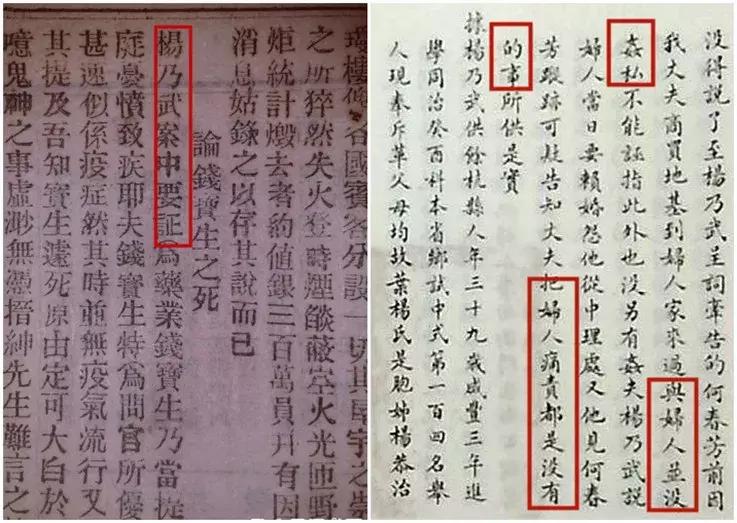 瓊樓各國賓客分設一切其屋宇之崇
之所猝然失火登時煙燄蔽空火光匝野
炬統計燬去者約値銀三百萬員幵有因
消息姑錄之以存其說而已
論錢寶生之死
楊乃武案中要証爲藥業錢寶生乃當提
庭憂憤致疾耶夫錢寶生特爲問官所優
甚速似係疫症然其時並無疫氣流行又
其提及吾知寶生遽死原由定可大白於
噫鬼神之事虛渺無憑搢紳先生難言之
没得説了至楊乃武呈詞牽告的何春芳前因
我丈夫商買地基到婦人家來過與婦人並没
姦私不能誣指此外也没另有姦夫楊乃武説
婦人當日要賴婚怨他從中理處又他見何春
芳蹤跡可疑告知丈夫把婦人痛責都是没有
的事所供是實
據楊乃武供餘杭縣人年三十九歲咸豐三年進
學同治癸酉科本省鄉試中式第一百四名舉
人現奉斥革父母均故葉楊氏是胞姊楊恭治